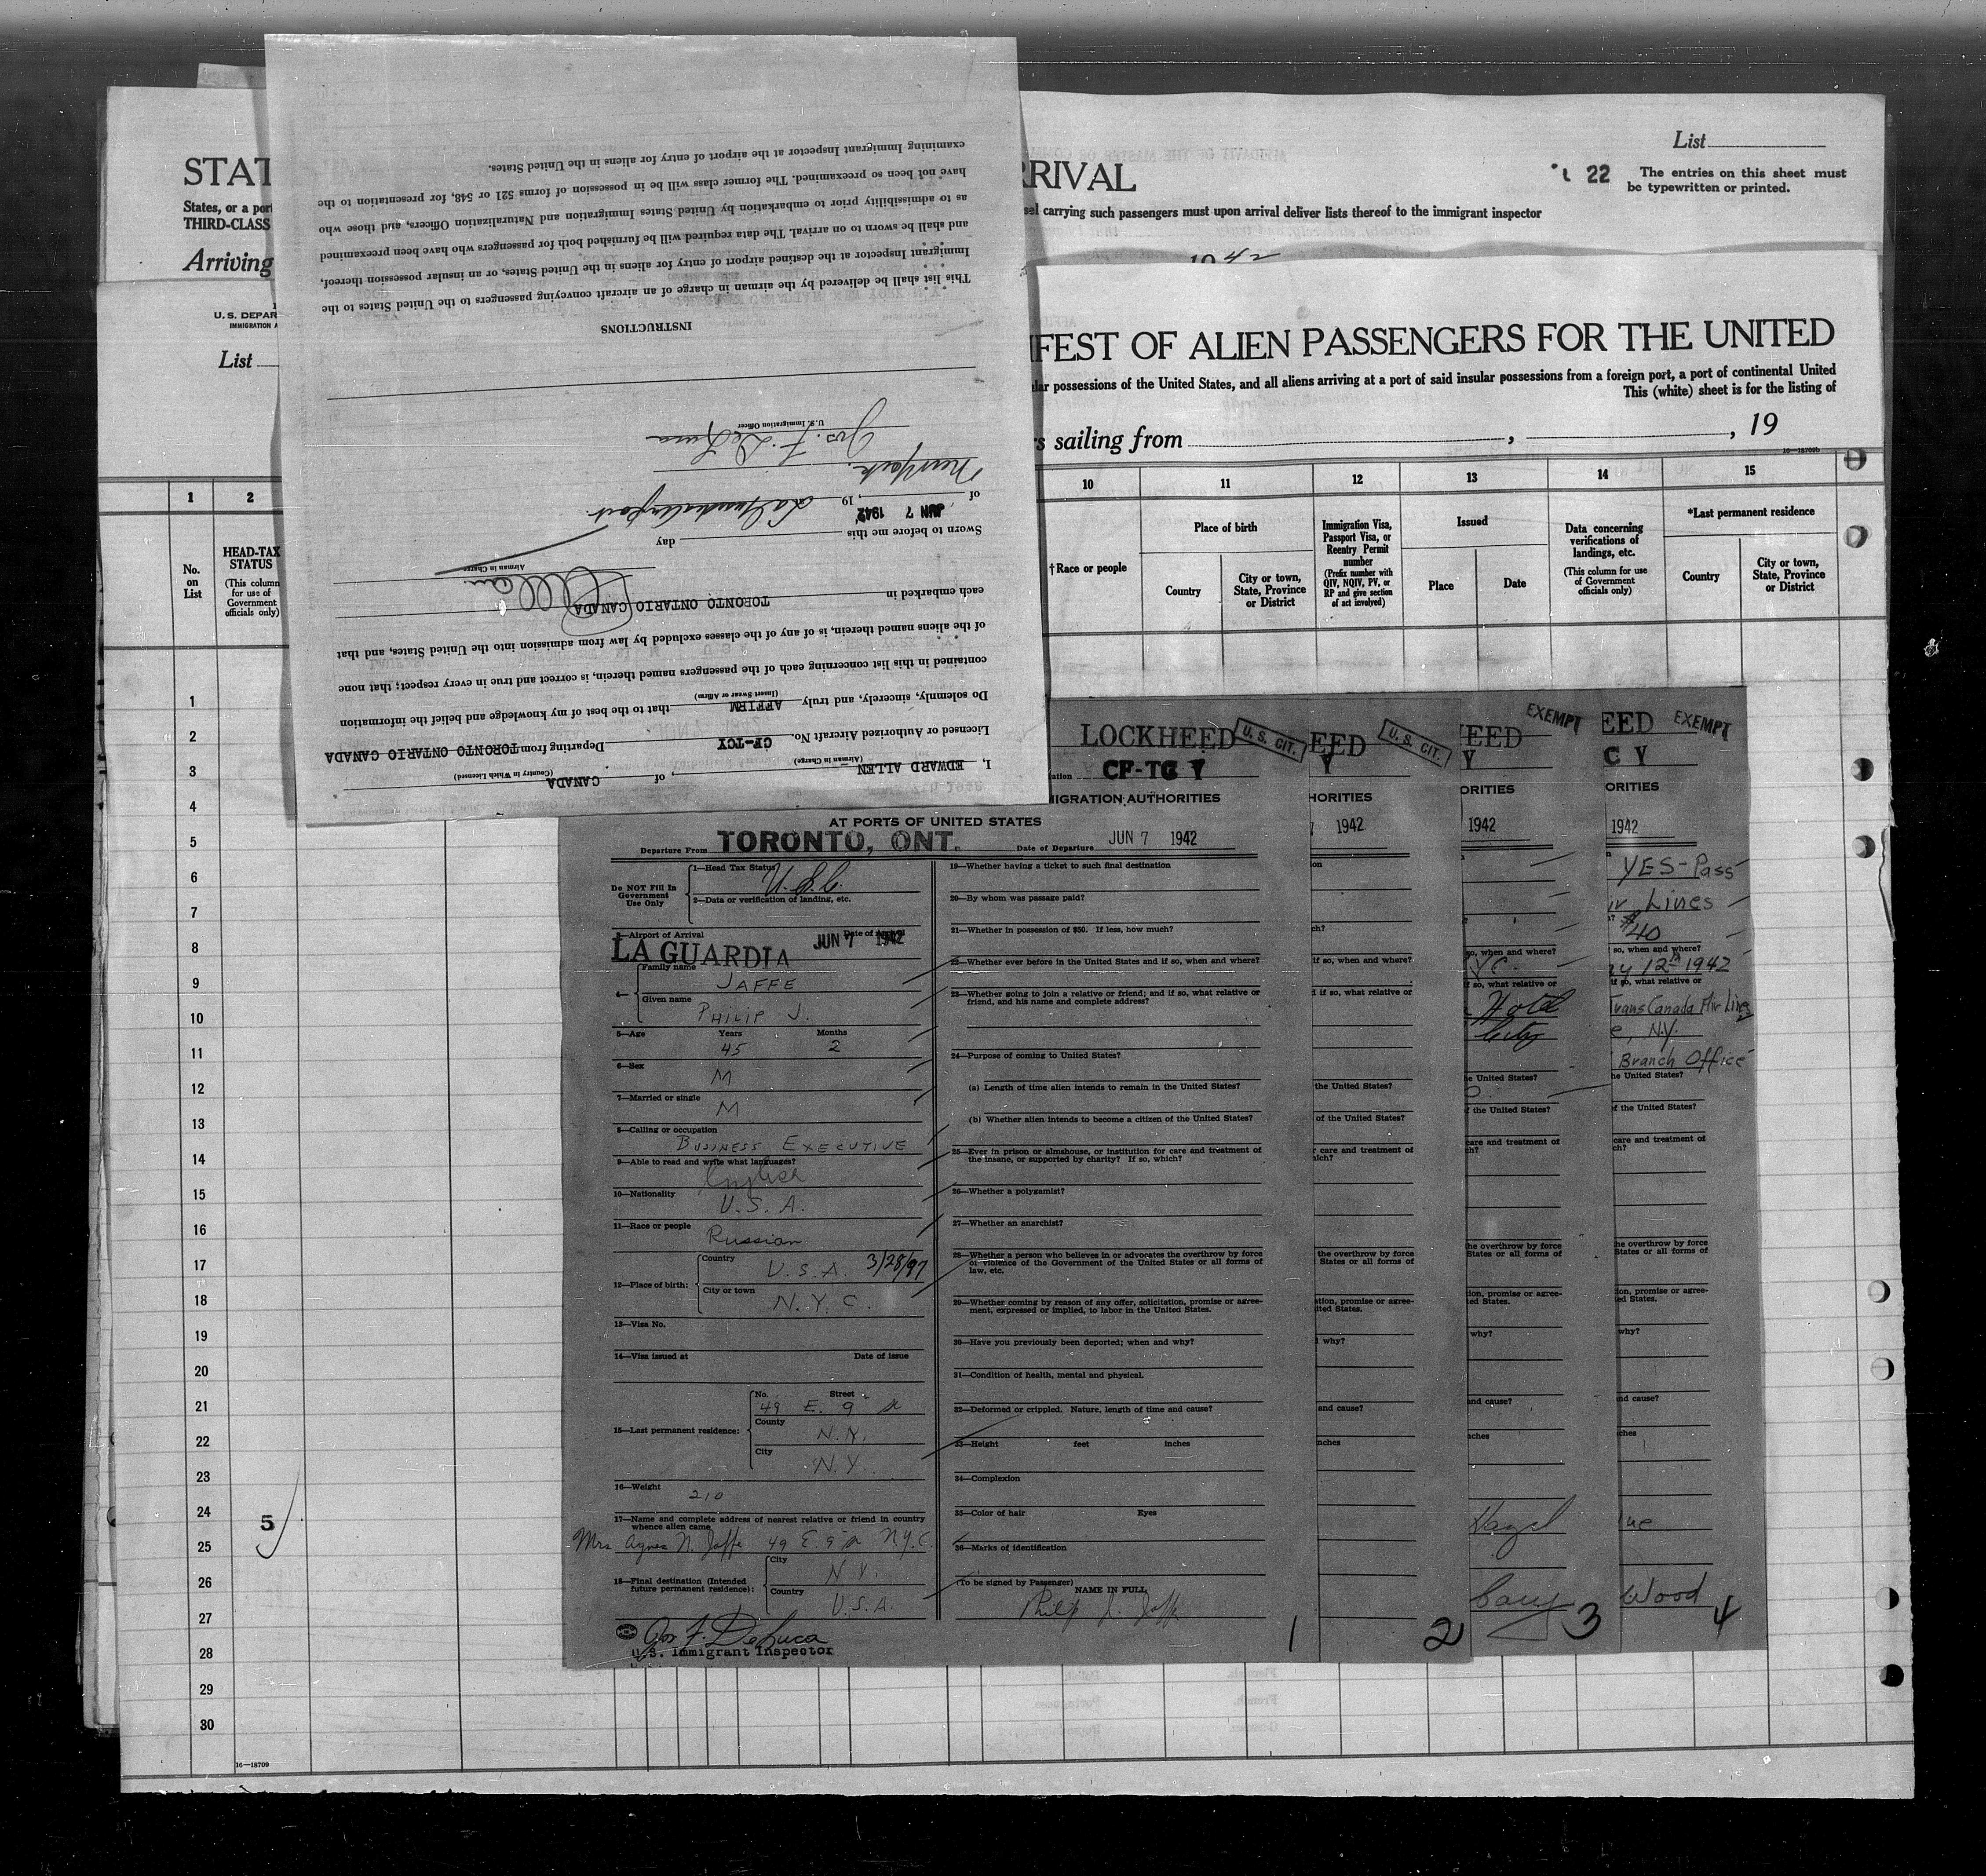 STAT
States, or a port
THIRD-CLASS
Arriving
RRIVAL
sel carrying such passengers must upon arrival deliver lists thereof to the immigrant inspector
List
22
The entries on this sheet must
be typewritten or printed.
19 42
U. S. DEPAR
IMMIGRATION A
List
IFEST OF ALIEN PASSENGERS FOR THE UNITED
lar possessions of the United States, and all aliens arriving at a port of said insular possessions from a foreign port, a port of continental United
This (white) sheet is for the listing of
rs sailing from , , 19
16—18709b
1 2
No.
on
List
HEAD-TAX
STATUS
(This column
for use of
Government
officials only)
10 11 12 13 14 15
†Race or people
Place of birth
Country
City or town,
State, Province
or District
Immigration Visa,
Passport Visa, or
Reentry Permit
number
(Prefix number with
QIV, NQIV, PV, or
RP and give section
of act involved)
Issued
Place
Date
Data concerning
verifications of
landings, etc.
(This column for use
of Government
officials only)
*Last permanent residence
Country
City or town,
State, Province
or District
1
2
3
4
5
6
7
8
9
10
11
12
13
14
15
16
17
18
19
20
21
22
23
24
5
25
26
27
28
29
30
16—18709
I, EDWARD ALLEN, of CANADA
(Airman in Charge) (Country in Which Licensed)
Licensed or Authorized Aircraft No. CF-TCY Departing from TORONTO ONTARIO CANADA
Do solemnly, sincerely, and truly AFFIRM that to the best of my knowledge and belief the information
(Insert Swear or Affirm)
contained in this list concerning each of the passengers named therein, is correct and true in every respect; that none
of the aliens named therein, is of any of the classes excluded by law from admission into the United States, and that
each embarked in TORONTO ONTARIO CANADA
Airman in Charge
Sworn to before me this day
of JUN 7 1942, 19
New York.
Jos. F. DeLuca
U. S. Immigration Officer
INSTRUCTIONS
This list shall be delivered by the airman in charge of an aircraft conveying passengers to the United States to the
Immigrant Inspector at the destined airport of entry for aliens in the United States, or an insular possession thereof,
and shall be sworn to on arrival. The data required will be furnished both for passengers who have been preexamined
as to admissibility prior to embarkation by United States Immigration and Naturalization Officers, and those who
have not been so preexamined. The former class will be in possession of forms 521 or 548, for presentation to the
examining Immigrant Inspector at the airport of entry for aliens in the United States.
LOCKHEED
U. S. CIT.
ation CF-TC Y
MIGRATION AUTHORITIES
AT PORTS OF UNITED STATES
Departure From TORONTO, ONT. Date of Departure JUN 7 1942
Do NOT Fill In
Government
Use Only
1—Head Tax Status
U.S.C.
2—Data or verification of landing, etc.
3—Airport of Arrival Date of Arrival
LA GUARDIA JUN 7 1942
4—
Family name
JAFFE
Given name
PHILIP J.
5—Age Years Months
45 2
6—Sex
M
7—Married or single
M
8—Calling or occupation
BUSINESS EXECUTIVE
9—Able to read and write what languages?
English
10—Nationality
U.S.A.
11—Race or people
Russian
12—Place of birth:
Country
U.S.A. 3/28/97
City or town
N.Y.C.
13—Visa No.
14—Visa issued at Date of issue
15—Last permanent residence:
No. Street
49 E. 9 St
County
N.Y.
City
N.Y.
16—Weight
210
17—Name and complete address of nearest relative or friend in country
whence alien came
Mrs Agnes N. Jaffe 49 E. 9 St N.Y.C.
18—Final destination (Intended
future permanent residence):
City
N.Y.
Country
U.S.A.
Jos F. DeLuca
U.S. Immigrant Inspector
19—Whether having a ticket to such final destination
20—By whom was passage paid?
21—Whether in possession of $50. If less, how much?
22—Whether ever before in the United States and if so, when and where?
23—Whether going to join a relative or friend; and if so, what relative or
friend, and his name and complete address?
24—Purpose of coming to United States?
(a) Length of time alien intends to remain in the United States?
(b) Whether alien intends to become a citizen of the United States?
25—Ever in prison or almshouse, or institution for care and treatment of
the insane, or supported by charity? If so, which?
26—Whether a polygamist?
27—Whether an anarchist?
28—Whether a person who believes in or advocates the overthrow by force
or violence of the Government of the United States or all forms of
law, etc.
29—Whether coming by reason of any offer, solicitation, promise or agree-
ment, expressed or implied, to labor in the United States.
30—Have you previously been deported; when and why?
31—Condition of health, mental and physical.
32—Deformed or crippled. Nature, length of time and cause?
33—Height feet inches
34—Complexion
35—Color of hair Eyes
36—Marks of identification
(To be signed by Passenger)
NAME IN FULL
Philip J. Jaffe
1
EED
U. S. CIT.
Y
HORITIES
7 1942
ion
ch?
if so, when and where?
d if so, what relative or
the United States?
of the United States?
r care and treatment of
ich?
the overthrow by force
States or all forms of
ation, promise or agree-
ited States.
why?
and cause?
nches
2
EED
EXEMPT
Y
ORITIES
1942
so, when and where?
YC.
f so, what relative or
Hotel
City
he United States?
f the United States?
care and treatment of
h?
he overthrow by force
States or all forms of
ion, promise or agree-
ed States.
why?
and cause?
nches
Hazel
3
EED
EXEMPT
C Y
ORITIES
1942
YES-Pass
ir Lines
$40
so, when and where?
ay 12th 1942
if so, what relative or
Trans Canada Air Lines
e, N.Y.
Branch Office
he United States?
of the United States?
care and treatment of
ch?
he overthrow by force
States or all forms of
ion, promise or agree-
ed States.
why?
nd cause?
ches
lue
Wood
4